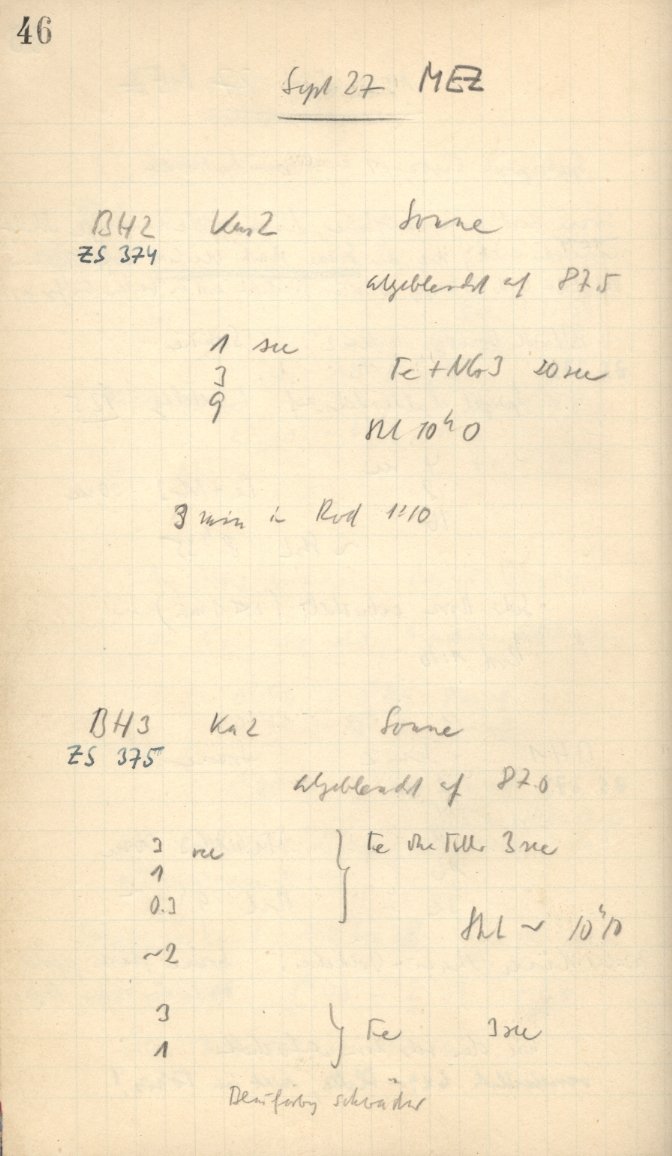 46
Sept 27 MEZ
BH2 Kas2 Sonne
ZS 374
abgeblendet auf 87.5
1 sec
3 Fe + NGr3 20 sec
9
Mitte 10h 0
3 min in Rod 1:10
BH3 Ka2 Sonne
ZS 375
abgeblendet auf 87.0
3 sec Fe ohne Filter 3 sec
1
0.3
~ 10h10
~2
3
1 Fe 3 sec
schwächer